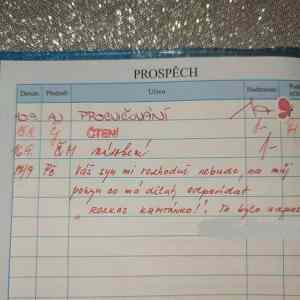 PROSPĚCH
Datum Předmět Učivo Hodnocení
10.9. AJ PROCVIČOVÁNÍ 1A
ČJ ČTENÍ 1-
16.9. ČM násobení 1-
17/9 Př Váš syn mi rozhodně nebude, na můj
pokyn co má dělat, odpovídat
„ ROZKAZ KAPITÁNKO!". To bylo napos